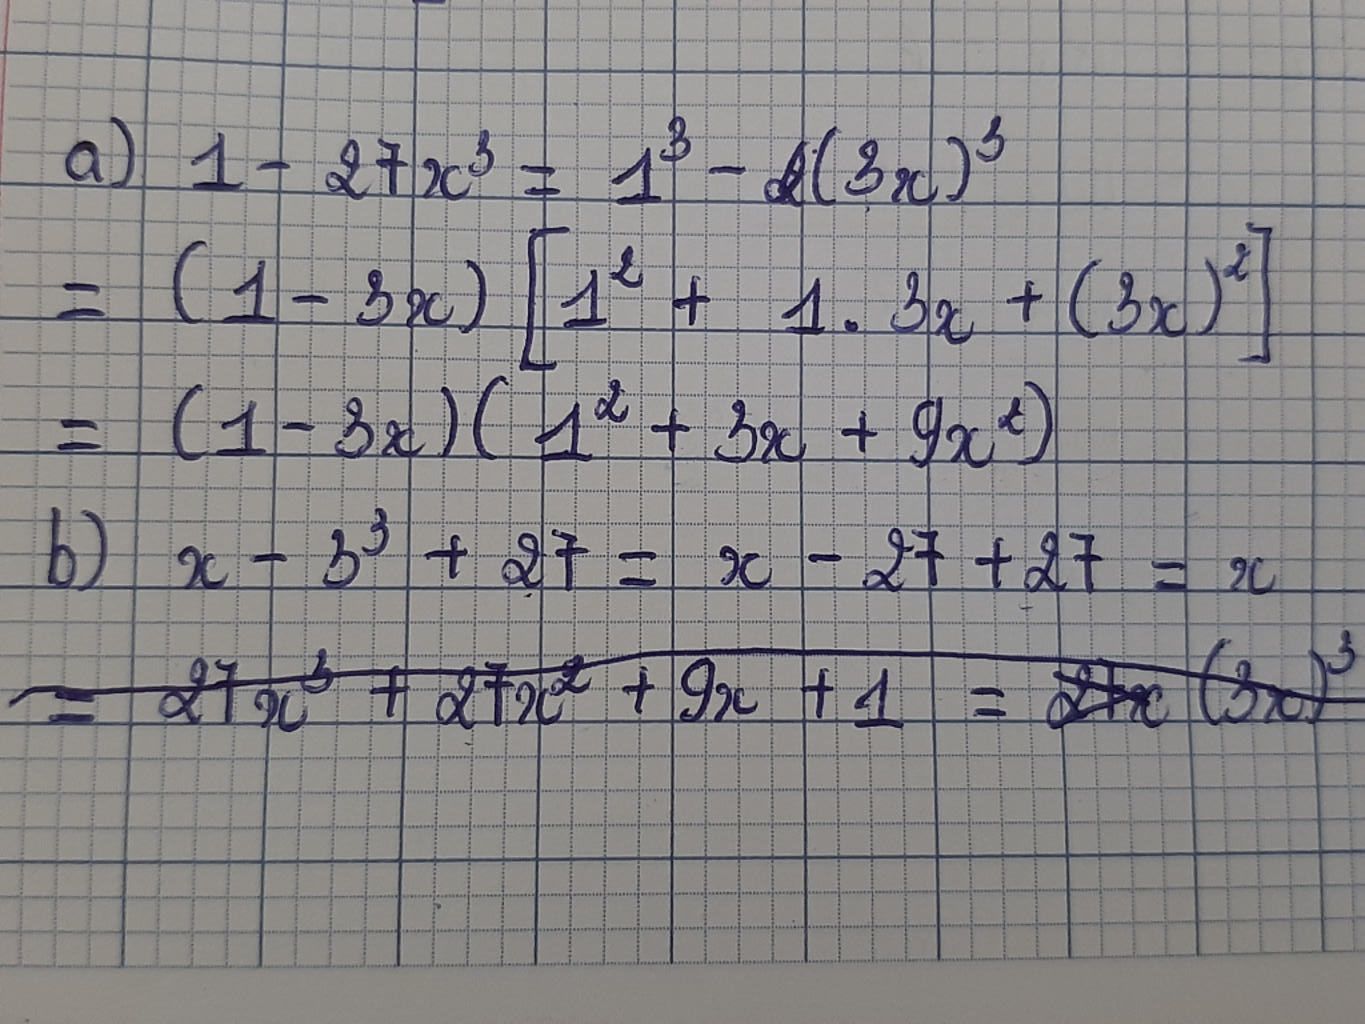 a) 1 - 27x³ = 1³ - (3x)³
= (1 - 3x) [1² + 1. 3x + (3x)²]
= (1 - 3x)(1² + 3x + 9x²)
b) x - 3³ + 27 = x - 27 + 27 = x
= 27x³ + 27x² + 9x + 1 = 27x (3x)³